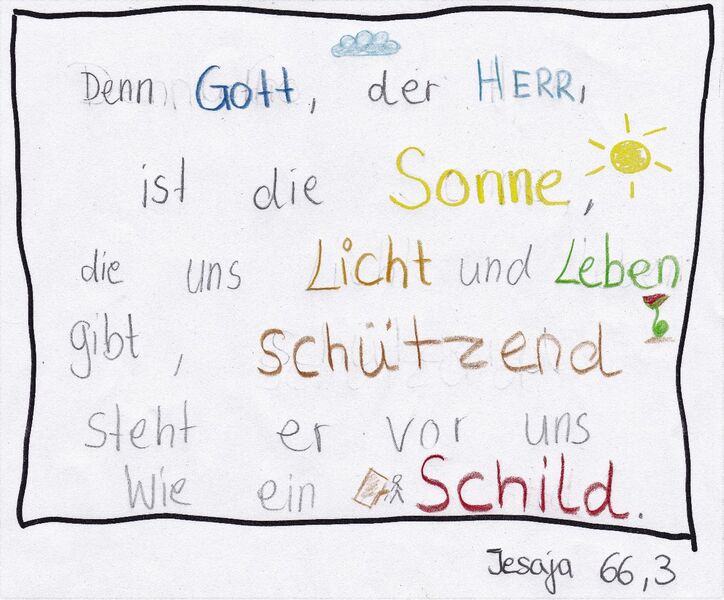 Denn Gott, der HERR,
ist die Sonne,
die uns Licht und Leben
gibt, schützend
steht er vor uns
Wie ein Schild.
Jesaja 66,3